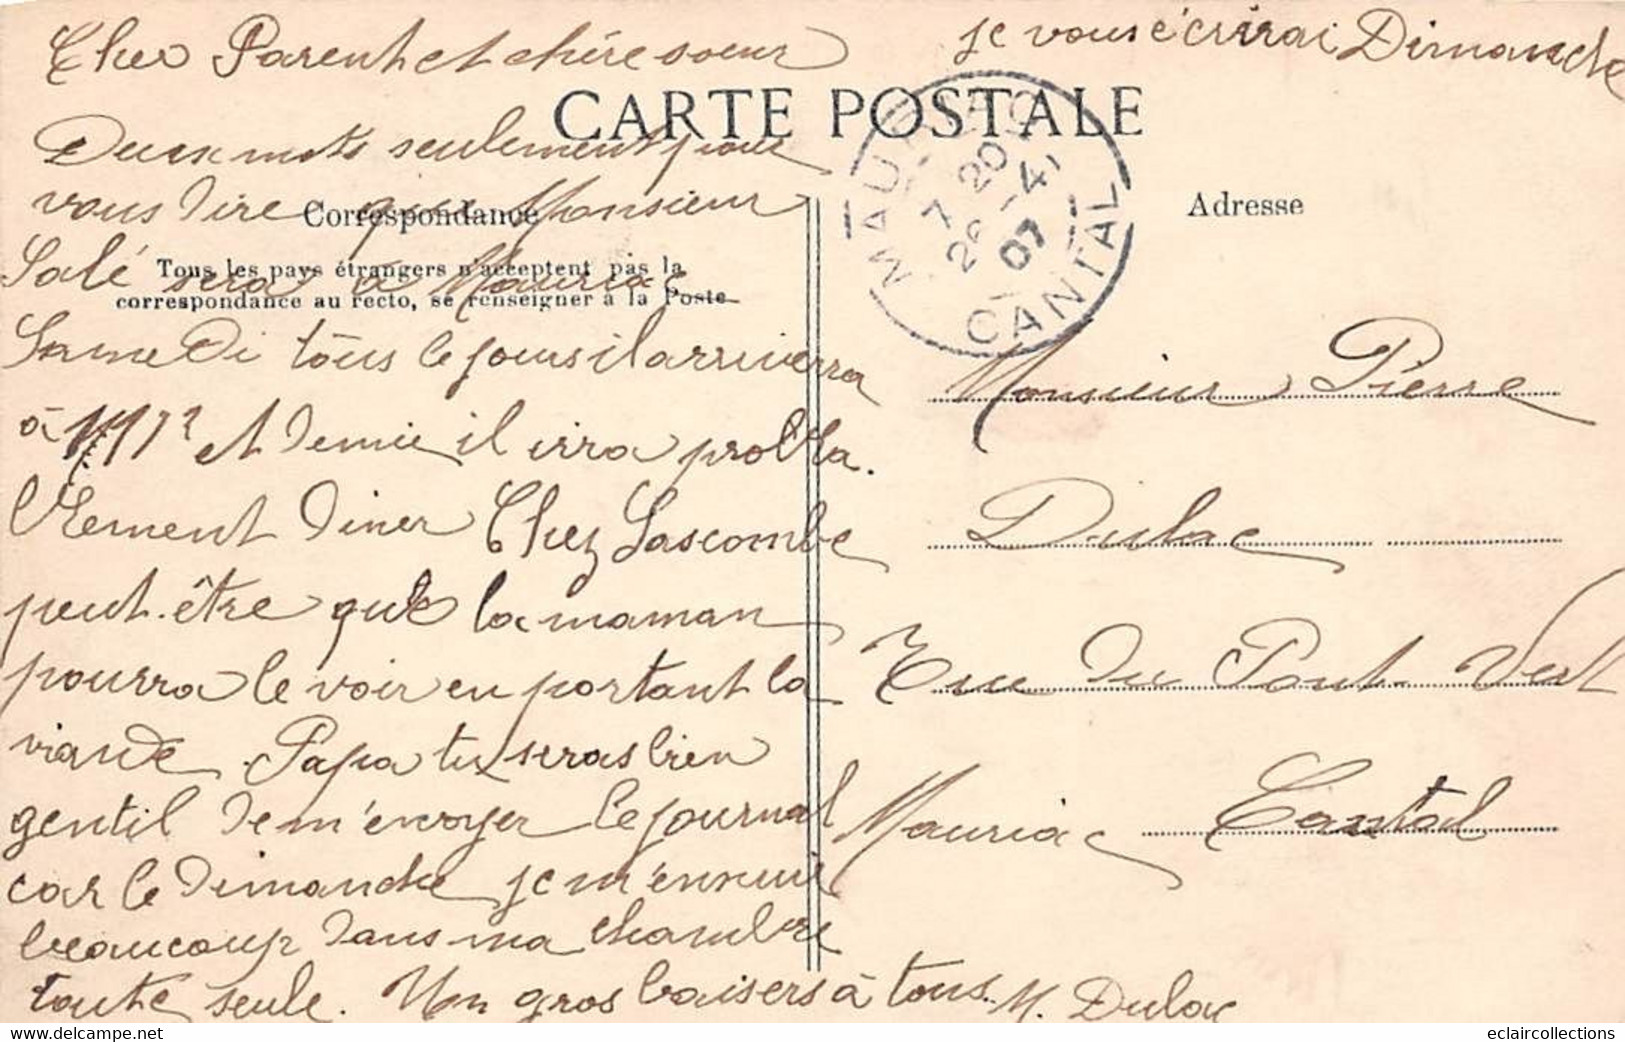 Cher Parent et chère soeur
je vous écrirai Dimanche
CARTE POSTALE
Deux mots seulement pour
vous dire que Monsieur
Correspondance
Salé sera à Mauriac
Tous les pays étrangers n'acceptent pas la
correspondance au recto, se renseigner à la Poste
Samedi tous le jours il arriverra
à et demie il irra probla.
blement diner Chez Lascombe
peut-être que la maman
pourra le voir en portant la
viande. Papa tu seras bien
gentil de m'envoyer le journal
car le dimanche je m'ennuie
beaucoup dans ma chambre
toute seule. Un gros baisers à tous. M. Dulac
MAURIAC
7 20
26 -4
07
CANTAL
Adresse
Monsieur Pierre
Dulac
Rue du Pont Vert
Mauriac Cantal
eclaircollections